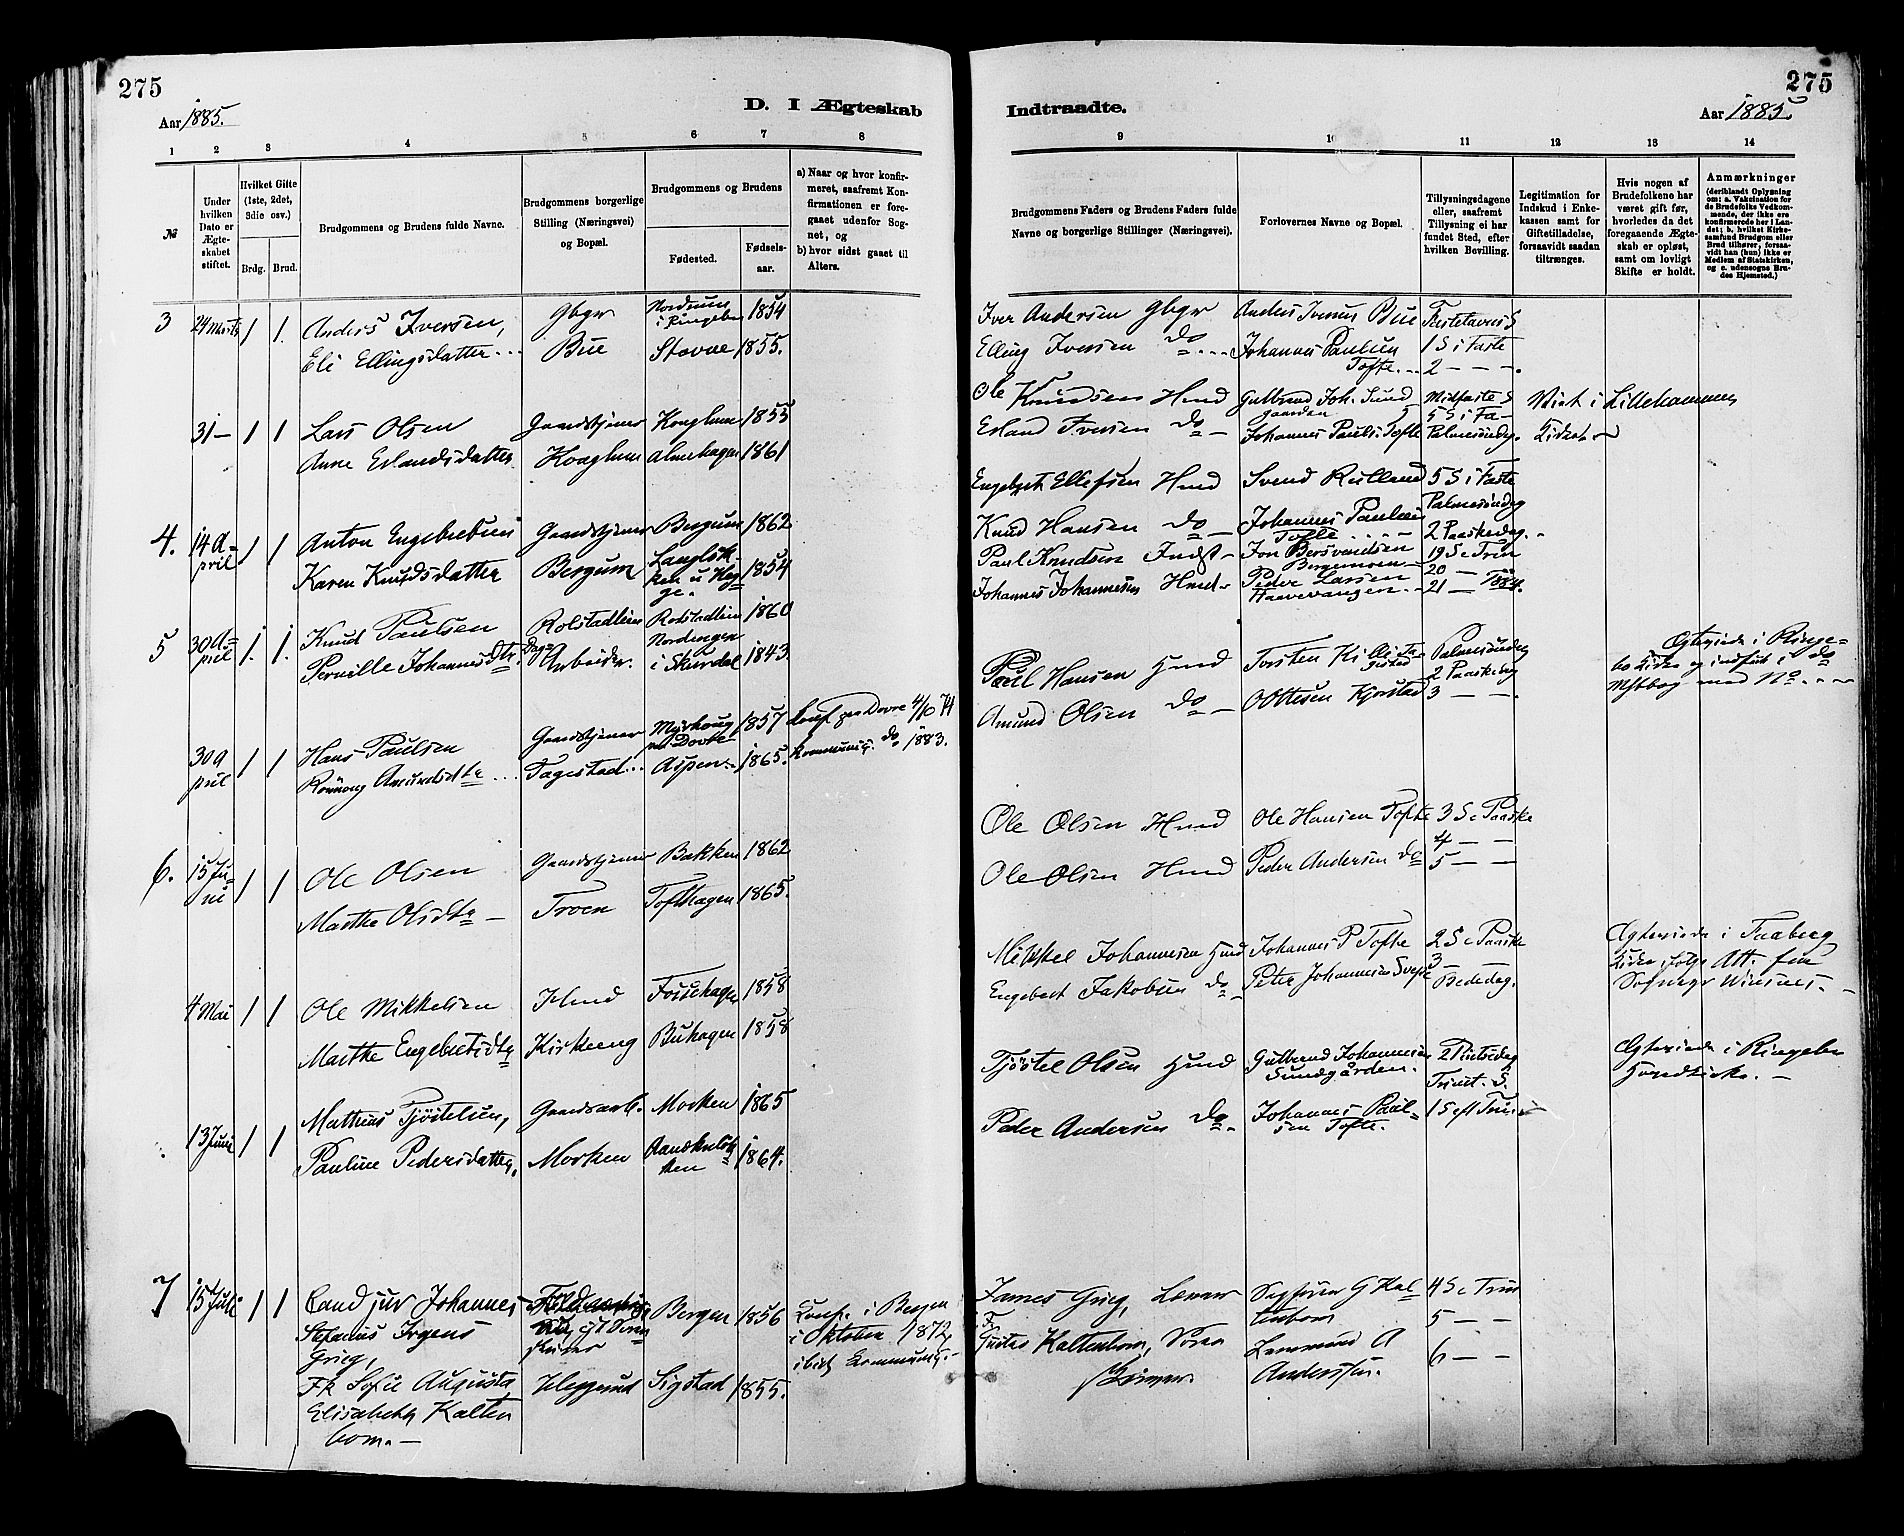 275
Aar 1885.
D. I Ægteskab
1 2 3 4 5 6 7 8
№
Under hvilken Dato er Ægteskabet stiftet.
Hvilket Gifte (1ste, 2det, 3die osv.)
Brdg. Brud.
Brudgommens og Brudens fulde Navne.
Brudgommens borgerlige Stilling (Næringsvei) og Bopæl.
Brudgommens og Brudens
Fødested.
Fødselsaar.
a) Naar og hvor konfirmeret, saafremt Konfirmationen er foregaaet udenfor Sognet, og
b) hvor sidst gaaet til Alters.
3 24 Marts 1 1. Anders Iversen, Gbgr Nordrum i Ringebu 1854
Eli Ellingsdatter Bue Stovne 1855.
31 — 1 1 Lars Olsen Gaardstjener Kongslum 1855
Anne Erlandsdatter Almehagen 1861
4. 14 April 1 1 Anton Engebretsen Gaardstjener Bergum 1862
Karen Knudsdatter Bergum 1854
5 30 April 1. 1. Knud Paulsen Rolstadlien 1860
Pernille Johannesdtr. Dagarbeider. Nordengen i Skurdal 1843
30 April 1 1 Hans Paulsen Gaardstjener Myrhaug paa Dovre 1857 Konf. paa Dovre 4/10 74
Rønnaug Amundsdtr Fagestad Aspen 1865. kommunic. do 1883.
6. 15 Juni 1 1 Ole Olsen Gaardstjener Bakken 1862
Marthe Olsdtr — Troen Tofthagen 1865.
4 Mai 1 1 Ole Mikkelsen Hmd Fossehagen 1858
Marthe Engebretsdtr Kirkeeng Buhagen 1858
13 Juni 1 1 Matthias Tjøstelsen, Gaardsarb. Morken 1865
Pauline Pedersdatter, Morken 1864.
7 15 Juli 1 1 Cand jur Johannes Bergen 1856 Konf. i Bergen
Stefanus Irgens i Oktober 1872,
Grieg, ibid. Kommunic.
Frk Sofie Augusta Heggerud Sigstad 1855.
Elisabeth Kaltenborn. —
275
Indtraadte.
Aar 1885.
9 10 11 12 13 14
Brudgommens Faders og Brudens Faders fulde Navne og borgerlige Stillinger (Næringsvei).
Forlovernes Navne og Bopæl.
Tillysningsdagene eller, saafremt Tillysning ei har fundet Sted, efter hvilken Bevilling.
Legitimation for Indskud i Enkekassen samt for Giftetilladelse, forsaavidt saadan tiltrænges.
Hvis nogen af Brudefolkene har været gift før, hvorledes da det foregaaende Ægteskab er opløst, samt om lovligt Skifte er holdt.
Anmærkninger
(deriblandt Oplysning om: a. Vakcination for Brudefolks Vedkommende, der ikke ere konfirmerede her i Landet; b. hvilket Kirkesamfund Brudgom eller Brud tilhører, forsaavidt han (hun) ikke er Medlem af Statskirken, og c. udensogns Brudes Hjemsted.)
Iver Andersen Gbgr Anders Iversen Bue Fastelavns S
Elling Iversen do Johannes Paulsen Tofte 1 S i Faste
2 — — —
Ole Knudsen Hmd Gulbrand Joh. Sundgaarden Midfaste S Viet i Lillehammer
Erland Iversen do — Johannes Pauls. Tofte 5 S i Fa— Palmesøndag. Kirke —
Engebret Ellefsen Hmd Svend Rulland 5 S i Faste
Knud Hansen do — Johannes Paulsen Tofte Palmesøndag 2 Paaskedag.
Paul Knudsen Indst — Jon Bersvendsen Bergemoen 19 S e Trin
Johannes Johannesen Hmd — Peder Larsen Haavevangen. 20 — 21 —
Paul Hansen Hmd Torsten Palmesøndag Ægteviede i Ringebo Kirke og indført i do
Amund Olsen do — Ottesen Kjorstad 2 Paaskedag 3 — — Mstbog med No
Ole Olsen Hmd Ole Hansen Tofte 3 S e Paaske
Ole Olsen Hmd Peder Andersen do 4 — — 5 — —
Mikkel Johannesen Hmd Johannes P Tofte 2 S e Paaske Ægteviede i Faaberg
Engebret Jakobsen do — Peter Johannesen 3 — Bededag. Kirke, ifølge Att. fra Sognepr
Tjøstel Olsen Hmd Gulbrand Johannesen Sundgården. 2 Pintsedag Ægteviede i Ringebu
Trinit. S. Hovedkirke. —
Peder Andersen do. Johannes Paulsen Tofte. 1 S eft Trin
James Grieg, 4 S e Trin
Kaltenborn, 5 — —
Anderssen. 6 — —